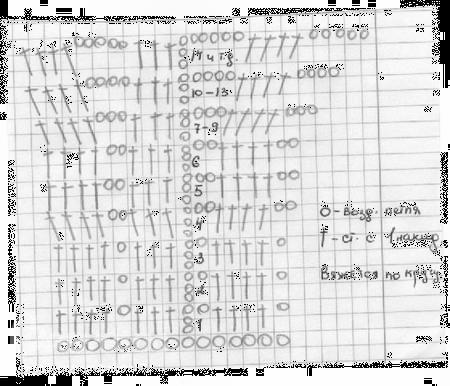 14 и т.д.
10-13
7-9
6
5
4
3
2
1
О - возд. петля
† - ст. с 1 накид.
Вяжется по кругу